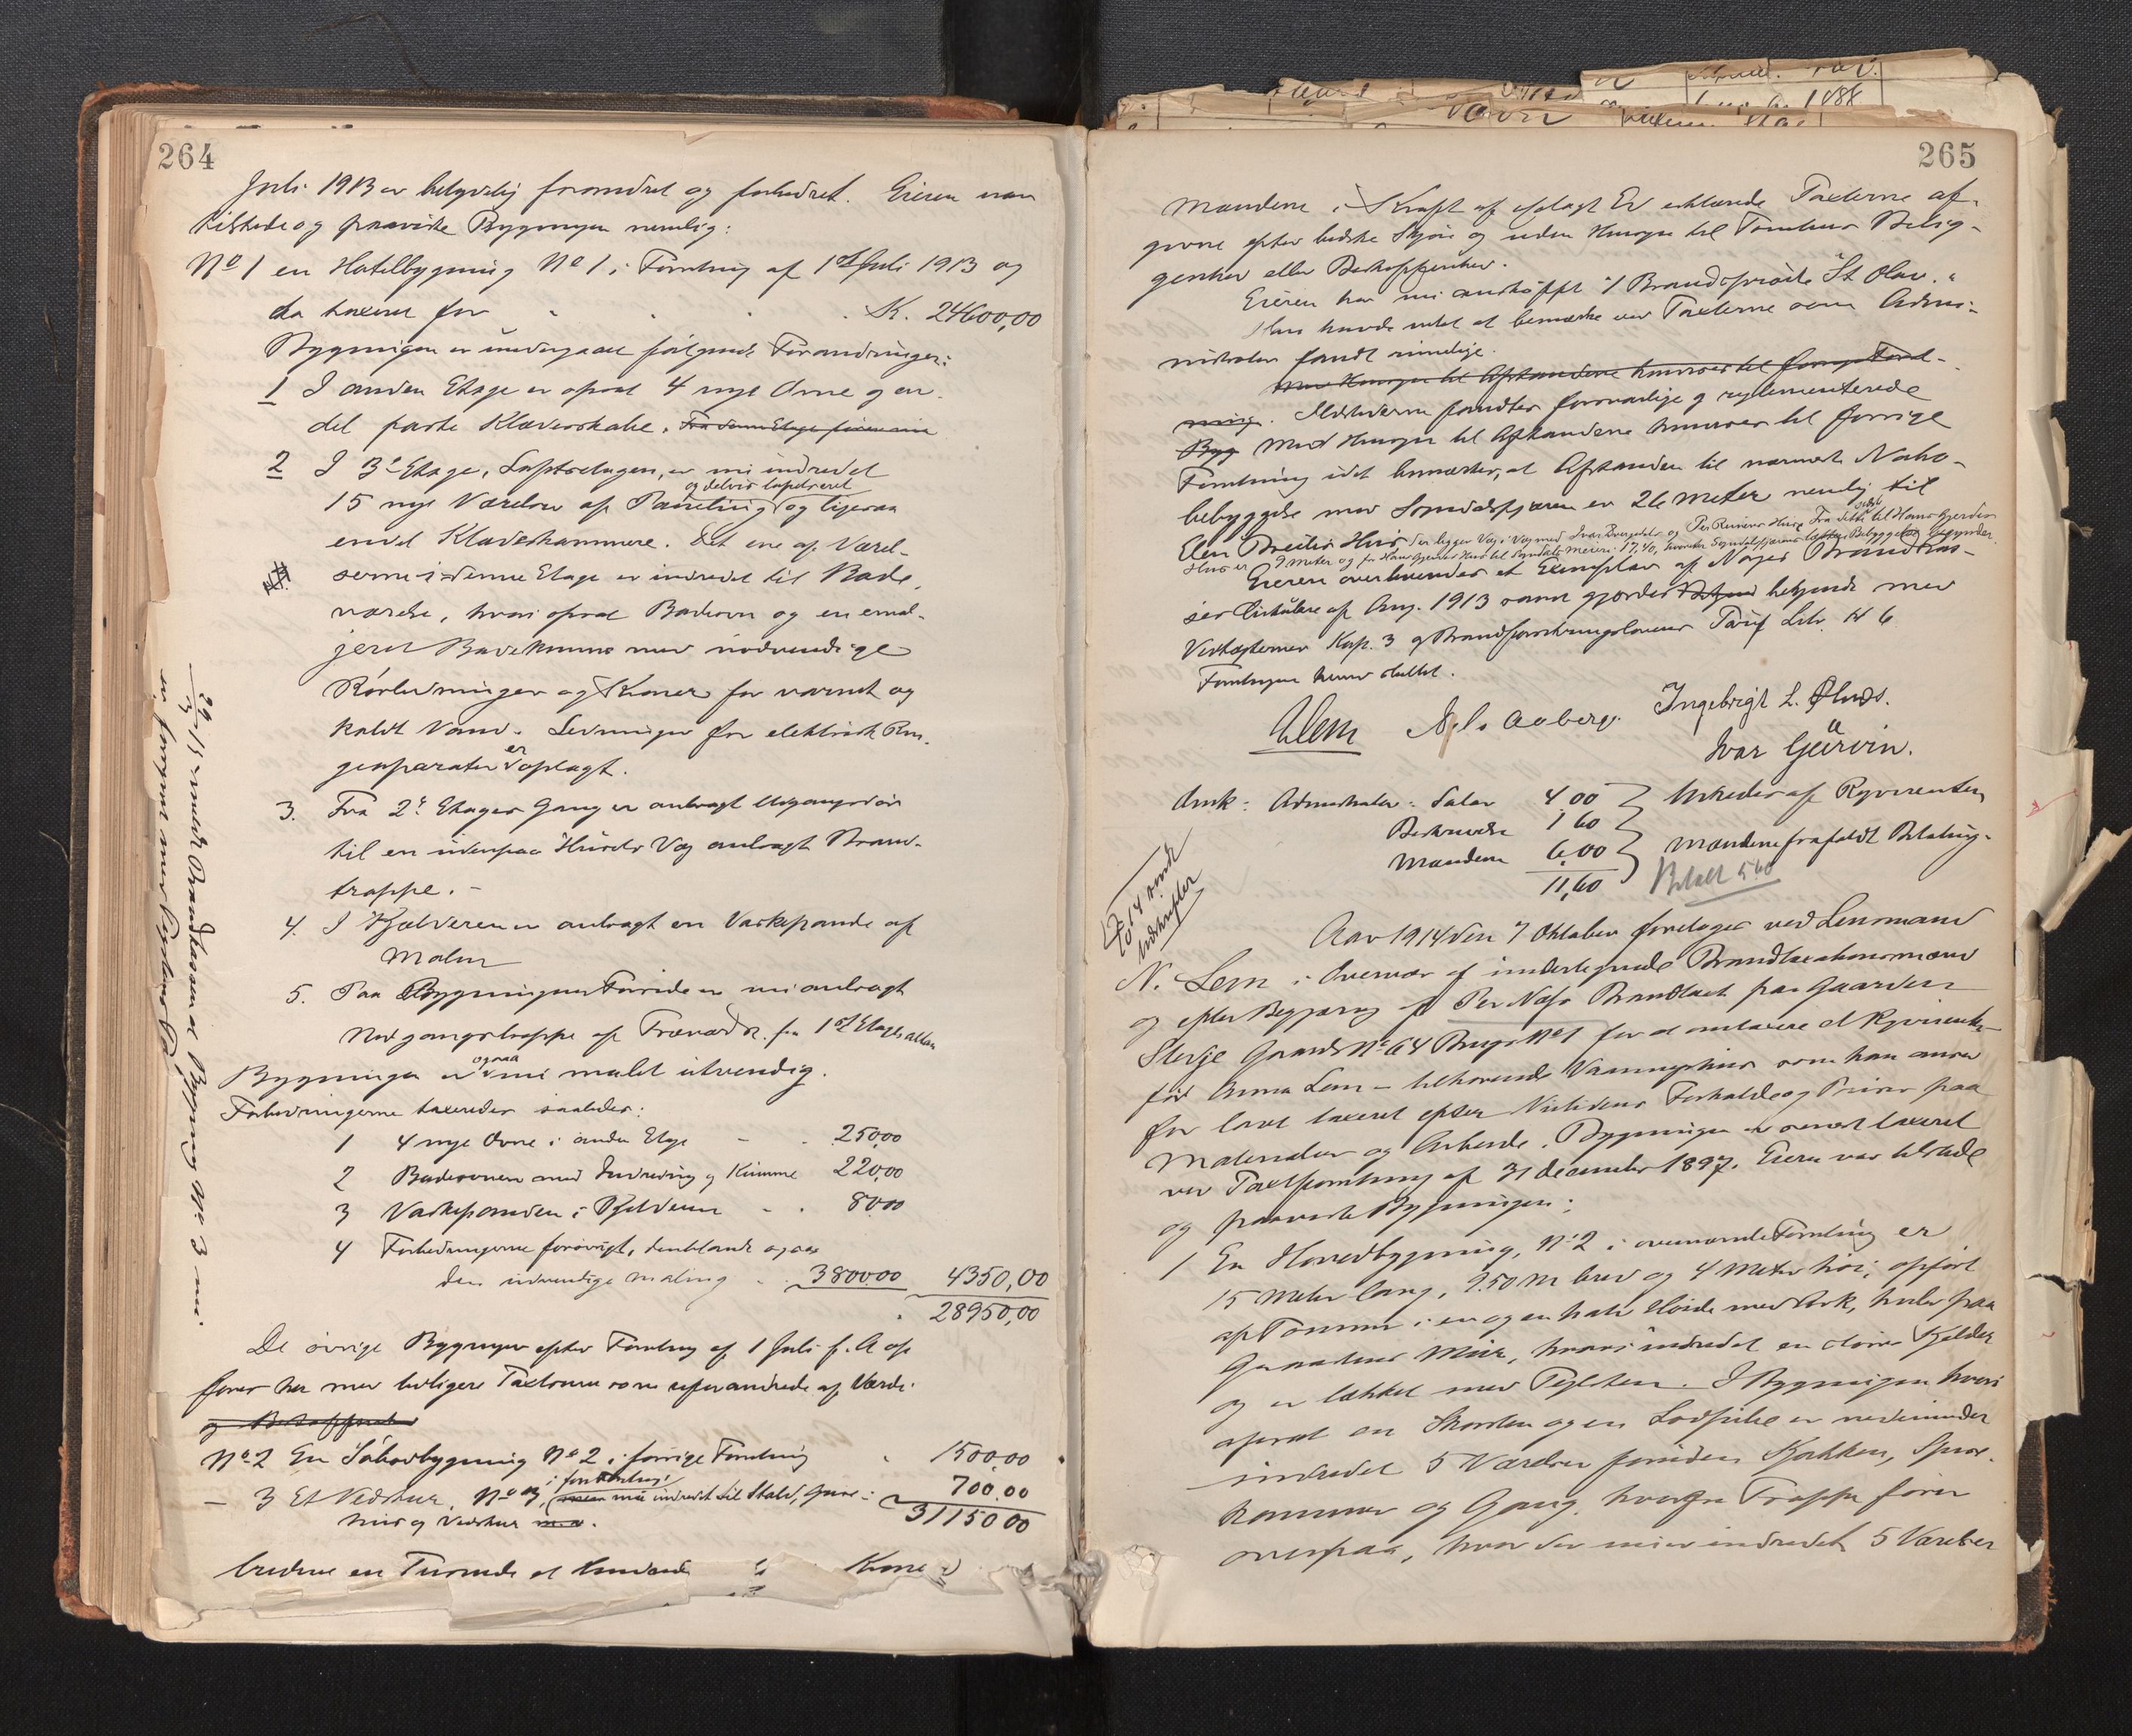 264
Juli 1913 er betydelig forandret og forbedret. Eieren var
tilstede og paaviste Bygningen nemlig:
No 1 en Hotelbygning No 1 i Forretning af 1ste Juli 1913 og
da taxeret for K. 24600,00
Bygningen er undergaaet følgende Forandringer:
1 I anden Etage er opsat 4 nye Ovne og en
del faste Klæderskabe. Fra denne Etage
2 I 3de Etage, Loftsetagen, er nu indredet
og delvis tapetseret
15 nye Værelser af Paneling og ligesaa
endel Klædeskammere. Det ene af Værel-
serne i denne Etage er indredet til Bade
værelse, hvori opsat Badeovn og en emal-
jeret Badekumme med nødvendige
Rørledninger og Kraner for varmt og
koldt Vand. Ledninger for elektrisk Rin-
geaparater er oplagt.
3. Fra 2den Etages Gang er anbragt Udgangsdør
til en udenpaa Husets Væg anbragt Brand-
trappe. -
4. I Kjælderen er anbragt en Vaskepande af
Malm
5. Paa Bygningens Forside er nu anbragt
Nedgangstrappe af Træværk fra 1ste Etages altan
Bygningen er ogsaa nu malet utvendig.
Forbedringerne taxeredes saaledes:
1 4 nye Ovne i anden Etage - . 250,00
2 Badeovnen med Indredning og Kumme 220,00
3 Vaskepanden i Kjelderen - . 80,00
4 Forbedringerne forøvrigt, deriblandt ogsaa
den udvendige Maling . 3800,00 4350,00
28950,00
De øvrige Bygninger efter Forretning af 1 Juli f. A op
føres her med tidligere Taxtsum som uforandrede af Værdi
og Beskaffenhed
No 2 En Søbodbygning No 2 i forrige Forretning . 1500,00
i forr. Forretning
- 3 Et Vedskur, No 3, nu indredet til Stald,
hus og Vedskur 700,00
31150,00
Kroner
29/ 15 sendt Brandkassen at Bygning No. 3 nu
265
Mændene i Kraft af aflagt Ed erklærede Taxterne af-
givne efter bedste Skjøn og uden Hensyn til Tomtens Belig-
genhed eller Beskaffenhed.
Eieren har nu anskaffet 1 Brandsprøite "St Olav".
Han havde intet at bemærke ved Taxterne som Admi-
nistrator fandt rimelige.
Med Hensyn til Afstandene henvises til forrige Forret-
ning. Ildstederne fandtes forsvarlige og reglementerede
Byg Med Hensyn til Afstandene henvises til forrige
Forretning idet bemærkes, at Afstanden til nærmeste Nabo-
bebyggelse med Sogndalsfjøren er 26 Meter nemlig til
Eieren overleveredes et Exemplar af Norges Brandkas-
ses Cirkulære af Aug. 1913 samt gjordes bekjendt med
Vedtægternes Kap. 3 og Brandforsikringslovens Tarif Litr. H 6
Forretningen herved sluttet.
NLem Nils Aaberge. Ingebrigt L. Ølnes.
Ivar Gurvin.
Anm: Administrator: Salær 4,00
Beskrivelse 1 60
Mændene 6,00
11,60
Udredes af Rekvirenten
Mændene frafaldt Betaling.
Betalt 5 60
10 14 sendt
Udskrifter
Aar 1914 den 7 Oktober foretoges ved Lensmand
N. Lem i Overvær af undertegnede Brandtaxationsmænd
og efter Begjæring af Per Næss Brandtaxt paa Gaarden
Stedje Gaards No 64 Brugs No 1 for at omtaxere et Rekvirenten
født Anna Lem - tilhørende Vaaningshus som han anser
for lavt taxeret efter Nutidens Forholde og Priser paa
Materialer og Arbeide. Bygningen er senest taxeret
ved Taxtforretning af 31 december 1897. Eieren var tilstede
og paaviste Bygningen:
1 En Hovedbygning, No 2 i ovennævnte Forretning er
15 Meter lang, 9.50 M bred og 4 Meter høi, opført
af Tømmer i en og en halv Høide med Ark, hviler paa
Graastens Mur, hvori indredet en større Kjelder
og er tækket med Teglsten. I Bygningen hvori
opsat en Skorsten og en Lodpibe er nedenunder
indredet 5 Værelser foruden Kjøkken, Spis-
kammer og Gang, hvorfra Trappe fører
ovenpaa, hvor der nu er indredet 5 Værelser